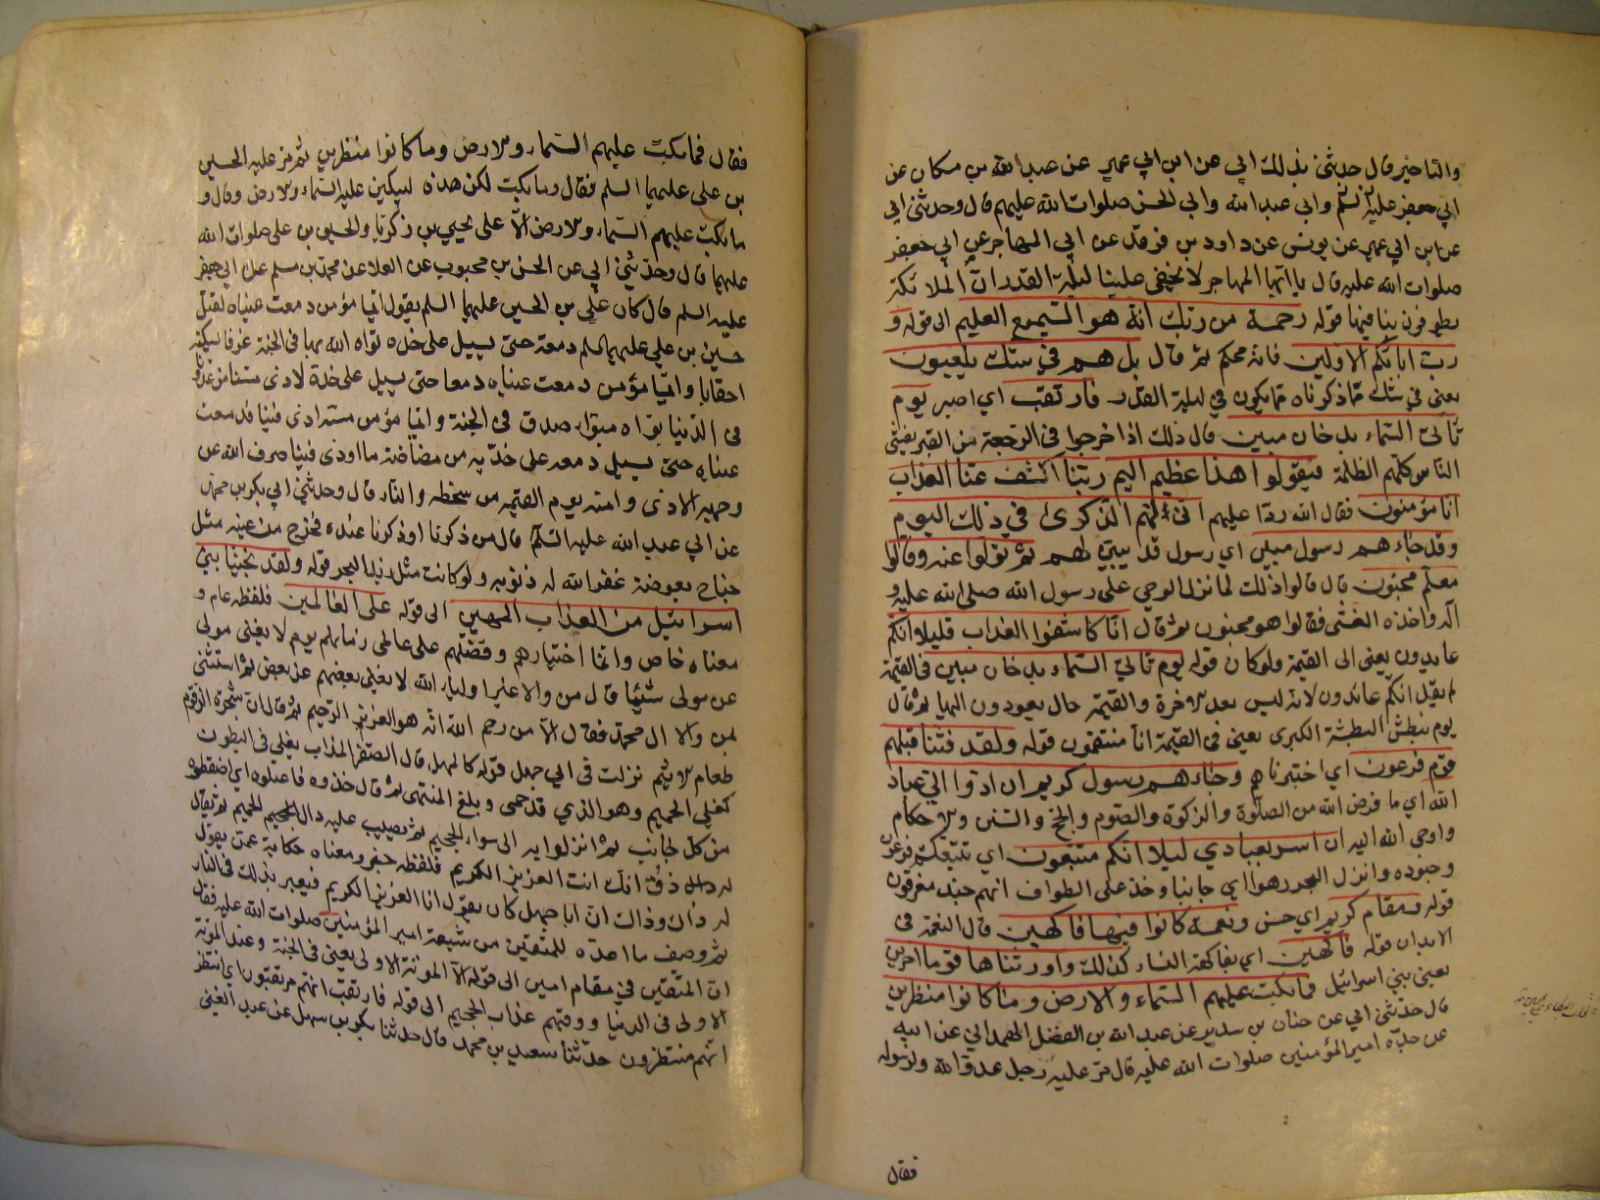 والتاخير قال حدثنى بذلك ابي عن ابن ابي عمير عن عبد الله بن مسكان عن
ابي جعفر عليه السلم وابي عبد الله وابي الحسن صلوات الله عليهم قال وحدثني ابي
عن ابن ابي عمير عن يونس عن داود بن فرقد عن ابي المهاجر عن ابي جعفر
صلوات الله عليه قال يا ابا المهاجر لا تخفى علينا ليلة القدر ان الملائكة
يطوفون بنا فيها قوله رحمة من ربك انه هو السميع العليم الى قوله و
رب ابائكم الاولين فانه محكم ثم قال بل هم في شك يلعبون
يعنى في شك مما ذكرناه مما يكون في ليلة القدر فارتقب اي اصبر يوم
تاتى السماء بدخان مبين قال ذلك اذا خرجوا فى الرجعة من القبر يغشى
الناس كلهم الظلمة فيقولوا هذا عظيم اليم ربنا اكشف عنا العذاب
انا مؤمنون فقال الله ردا عليهم انى لهم الذكرى في ذلك اليوم
وقد جاءهم رسول مبين اي رسول قد يبين لهم ثم تولوا عنه وقالوا
معلم مجنون قال قالوا ذلك لما نزل الوحي على رسول الله صلى الله عليه و
آله واخذه الغشى فقالوا هو مجنون ثم قال انا كاشفوا العذاب قليلا انكم
عايدون يعنى الى القيمة ولو كان قوله يوم تاتى السماء بدخان مبين فى القيمة
لم يقل انكم عائدون لانه ليس بعد الاخرة والقيمة حال يعودون اليها ثم قال
يوم نبطش البطشة الكبرى يعنى فى القيمة انا منتقمون قوله ولقد فتنا قبلهم
قوم فرعون اي اختبرناهم وجاءهم رسول كريم ان ادوا الي عباد
الله اي ما فرض الله من الصلوة والزكوة والصوم والحج والسنن والاحكام
واوحى الله اليه ان اسر بعبادي ليلا انكم متبعون اي تتبعكم فرعون
وجنوده وانزل البحر رهوا اي جانبا وخذ على الطواف انهم جند مغرقون
قوله ومقام كريم اي حسن ونعمة كانوا فيها فاكهين قال النعمة فى
الابدان قوله فاكهين اي بفاكهة النساء كذلك واورثناها قوما اخرين
يعنى بني اسرائيل فما بكت عليهم السماء والارض وما كانوا منظرين
قال حدثنى ابي عن حنان بن سدير عن عبد الله بن الفضل الهمداني عن ابيه
عن جده امير المؤمنين صلوات الله عليه قال مر عليه رجل عدو الله ولرسوله
فقال
فقال فما بكت عليهم السماء والارض وما كانوا منظرين ثم مر عليه الحسين
بن على عليهما السلم فقال وما بكت لكن هذه ليبكين عليه السماء والارض وقال و
ما بكت عليهم السماء والارض الا على يحيى بن زكريا والحسين بن على صلوات الله
عليهما قال وحدثني ابي عن الحسن بن محبوب عن العلا عن محمد بن مسلم عن ابي جعفر
عليه السلم قال كان على بن الحسين عليهما السلم يقول ايما مؤمن دمعت عيناه لقتل
حسين بن علي عليهما السلم دمعة حتى يسيل على خده بواه الله بها فى الجنة غرفا يسكنها
احقابا وايما مؤمن دمعت عيناه دمعا حتى يسيل على خده لاذى مسنا من عدونا
فى الدنيا بواه مبوا صدق فى الجنة وايما مؤمن مسه اذى فينا فدمعت
عيناه حتى يسيل دمعه على خديه من مضاضة ما اوذى فينا صرف الله عن
وجهه الاذى وامنه يوم القيمة من سخطه والنار قال وحدثني ابي بكر بن محمد
عن ابي عبد الله عليه السلم قال من ذكرنا او ذكرنا عنده فخرج من عينه مثل
جناح بعوضة غفر الله له ذنوبه ولو كانت مثل زبد البحر قوله ولقد نجينا بني
اسرائيل من العذاب المهين الى قوله على العالمين فلفظه عام و
معناه خاص وانما اختبارهم وفضلهم على عالمى زمانهم يوم لا يغنى مولى
عن مولى شيئا قال من والا غير اولياء الله لا يغنى بعضهم عن بعض ثم استثنى
لمن والا ال محمد فقال الا من رحم الله انه هو العزيز الرحيم ثم قال ان شجرة الزقوم
طعام الاثيم نزلت فى ابي جهل قوله كالمهل قال الصفر المذاب يغلى فى البطون
كغلى الحميم وهو الذي قد حمى وبلغ المنتهى ثم قال خذوه فاعتلوه اي اضغطوه
من كل جانب ثم انزلوا به الى سواء الجحيم ثم يصب عليه ذلك الحميم ثم يقال
له ذق انك انت العزيز الكريم فلفظه خبر ومعناه حكاية عمن يقول
له ذلك وذلك ان ابا جهل كان يقول انا العزيز الكريم فيعير بذلك فى النار
ثم وصف ما اعده للمتقين من شيعة امير المؤمنين صلوات الله عليه فقال
ان المتقين في مقام امين الى قوله الا الموتة الاولى يعنى فى الجنة وعند الموتة
الاولى فى الدنيا ووقهم عذاب الجحيم الى قوله فارتقب انهم مرتقبون اي انتظر
انهم منتظرون حدثنا سعيد بن محمد قال حدثنا بكر بن سهل عن عبد الغنى